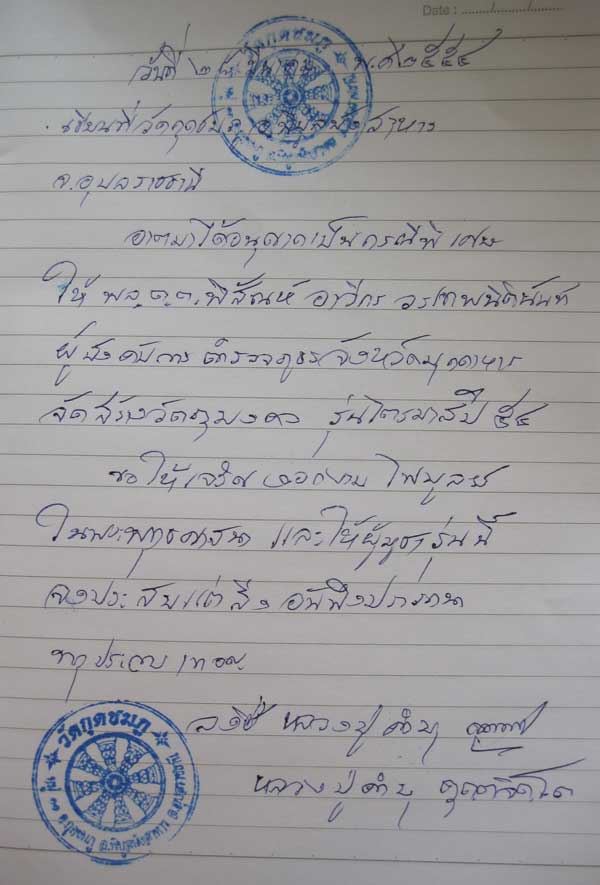 Date : ......../......../........
วันที่ ๒๘ มีนาคม พ.ศ ๒๕๕๔
เขียนที่วัดกุดชมภู อ.พิบูลมังสาหาร
จ.อุบลราชธานี
อาตมาได้อนุญาตเป็นกรณีพิเศษ
ให้ พล.ต.ต.พิสัณห์ อาวีกร วรเทพนิตินันท์
ผู้บังคับการ ตำรวจภูธรจังหวัดมุกดาหาร
จัดสร้างวัตถุมงคล รุ่นไตรมาสปี ๕๔
ขอให้เจริญงอกงาม ไพบูลย์
ในพระพุทธศาสนา และให้ผู้บูชารุ่นนี้
จงประสบแต่สิ่งอันพึงปรารถนา
ทุกประการ เทอญ
ลงชื่อ หลวงปู่คำบุ
หลวงปู่คำบุ คุตฺตจิตฺโต
วัดกุดชมภู